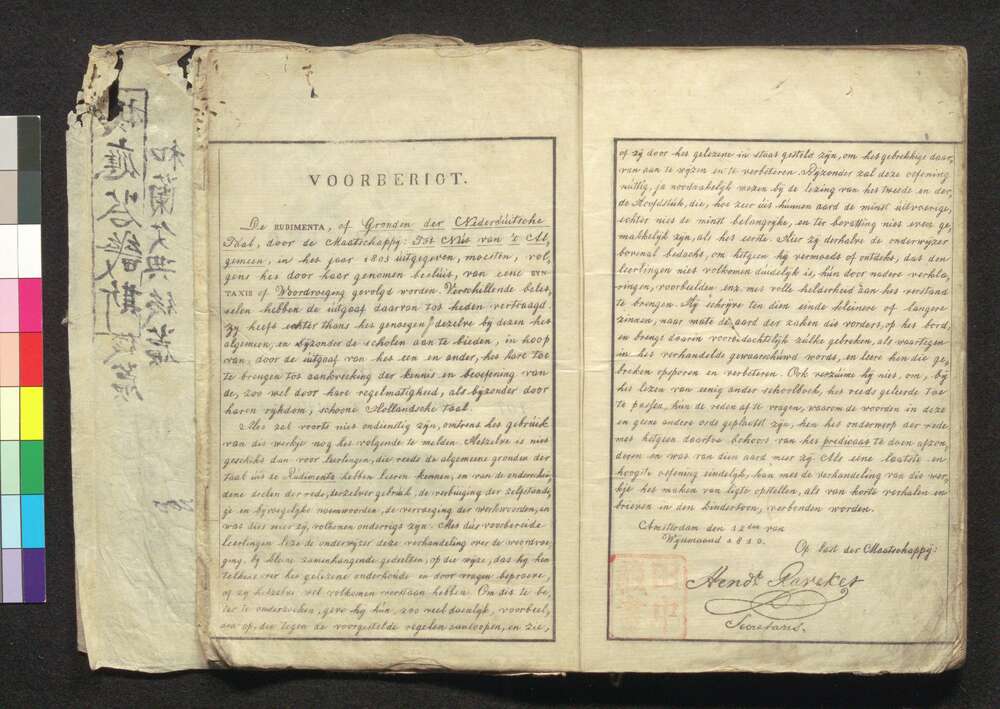 VOORBERIGT.
De RUDIMENTA, of Gronden der Nederduitsche
Taal, door de Maatschappy: Tot Nut van 't Al,
gemeen, in het jaar 1805 uitgegeven, moesten, vol,
gens het door haar genomen besluit, van eene SYN
TAXIS of Woordvoeging gevolgd worden. Verschillende belet,
selen hebben de uitgaaf daarvan tot heden vertraagd.
Zy heeft echter thans het genoegen, dezelve by dezen het
algemeen, en byzonder de scholen aan te bieden, in hoop
van, door de uitgaaf van het een en ander, het hare toe
te brengen tot aankweeking der kennis en beoefening van
de, zoo wel door hare regelmatigheid, als byzonder door
haren rykdom, schoone Hollandsche taal.
Het zal voorts niet ondienstig zyn, omtrent het gebruik
van dit werkje nog het volgende te melden. Hetzelve is niet
geschikt dan voor leerlingen, die reeds de algemeene gronden der
taal uit de Rudimenta hebben leeren kennen, en van de onderschei,
dene deelen der rede, derzelver gebruik, de verbuiging der zelfstandi,
ge en byvoegelyke naamwoorden, de vervoeging der werkwoorden, en
wat dies meer zy, volkomen onderrigt zyn. Met dus voorbereide
leerlingen leze de onderwyzer deze verhandeling over de woordvoe,
ging, by kleine zamenhangende gedeelten, op die wyze, dat hy hen
telkens over het gelezene onderhoude en door vragen beproeve,
of zy hetzelve wel volkomen verstaan hebben. Om dit te be,
ter te onderzoeken, geve hy hun, zoo veel doenlyk, voorbeel,
den op, die tegen de voorgestelde regelen aanloopen, en zie,
of zy door het gelezene in staat gesteld zyn, om het gebrekkige daar,
van aan te wyzen en te verbeteren. Byzonder zal deze oefening
nuttig, ja noodzakelyk wezen by de lezing van het tweede en der,
de Hoofdstuk, die, hoe zeer uit hunnen aard de minst uitvoerige,
echter niet de minst belangryke, en ter bevatting niet even ge,
makkelyk zyn, als het eerste. Hier zy derhalve de onderwyzer
bovenal bedacht, om hetgeen hy vermoedt of ontdekt, dat den
leerlingen niet volkomen duidelyk is, hun door nadere verkla,
ringen, voorbeelden enz. met volle helderheid aan het verstand
te brengen. Hy schryve ten dien einde kleinere of langere
zinnen, naar mate de aard der zaken dit vordert, op het bord,
en brenge daarin voorbedachtelyk zulke gebreken, als waartegen
in het verhandelde gewaarschuwd wordt, en leere hen die ge,
breken opsporen en verbeteren. Ook verzuime hy niet, om, by
het lezen van eenig ander schoolboek, het reeds geleerde toe
te passen, hun de reden af te vragen, waarom de woorden in deze
en geene andere orde geplaatst zyn, hen het onderwerp der rede
met hetgeen daartoe behoort van het predicaat te doen afzon,
deren en wat van dien aard meer zy. Als eene laatste en
hoogste oefening eindelyk, kan met de verhandeling van dit wer,
kje het maken van ligte opstellen, als van korte verhalen en
brieven in den kindertoon, verbonden worden.
Amsterdam den 12den van
Wynmaand 1810.
Op last der Maatschappy:
Hendk. Ravekes
Secretaris.